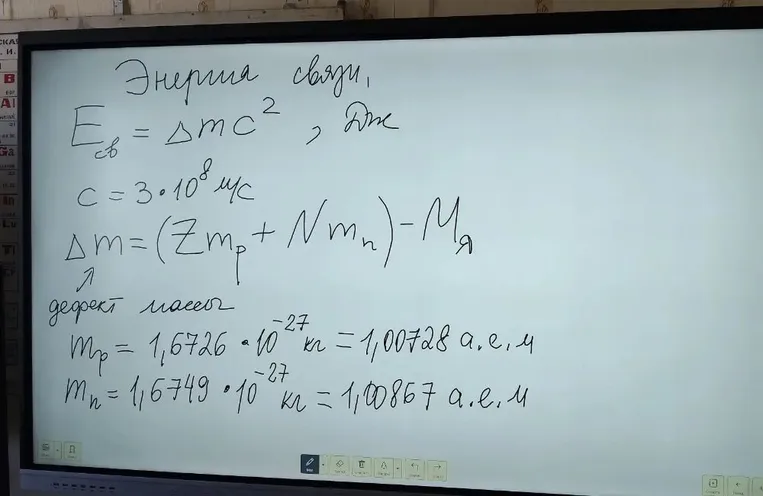 Энергия связи,
Eсв = Δmc², Дж
c = 3•10⁸ м/с
Δm = (Zmp + Nmn) - Mя
дефект массы
mp = 1,6726 •10⁻²⁷ кг = 1,00728 а.е.м
mn = 1,6749 •10⁻²⁷ кг = 1,00867 а.е.м